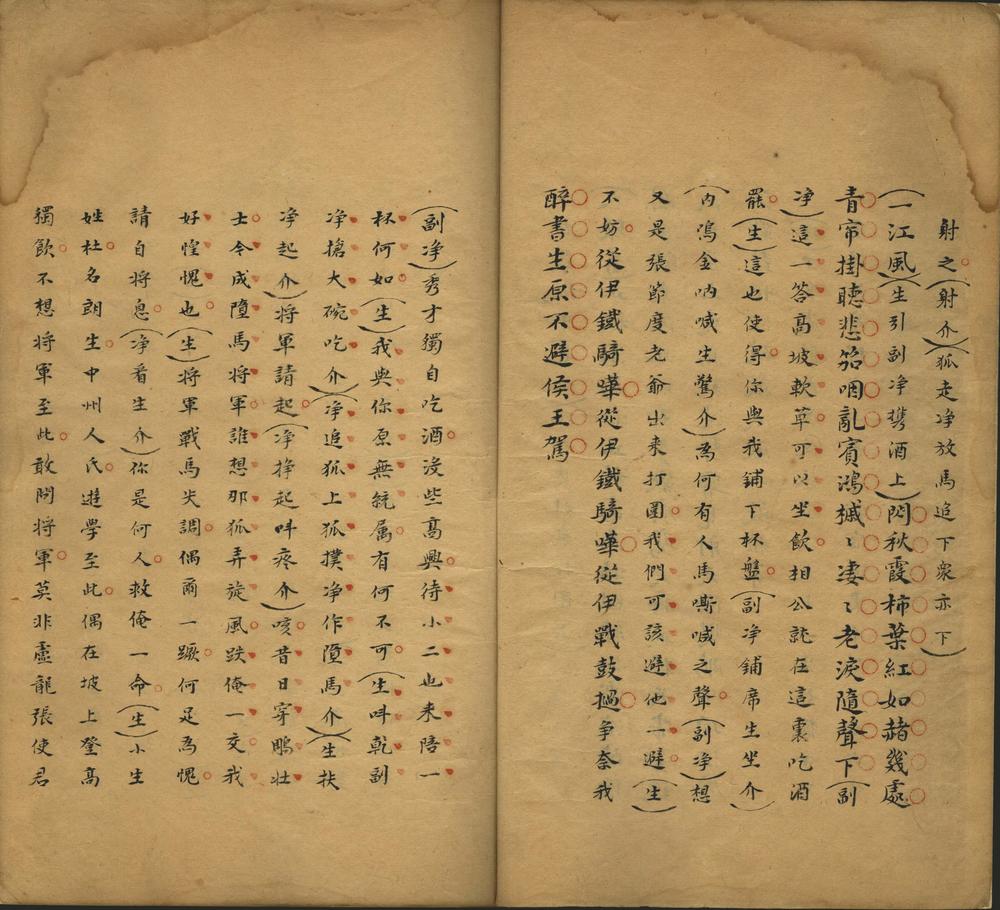 射之（射介）（狐走净放馬追下衆亦下）
一江風（生引副净携酒上）閃秋霞柿葉紅如赭幾處
青帘掛聴悲笳咽亂賓鴻摵〻淒〻老淚隨聲下（副
净）這一答高坡軟草可以坐飲相公就在這裏吃酒
罷（生）這也使得你與我鋪下杯盤（副净鋪席生坐介）
（内鳴金吶喊生驚介）爲何有人馬嘶喊之聲（副净）想
又是張節度老爺出来打圍我們可該避他一避（生）
不妨從伊鐵騎嘩從伊鐵騎嘩從伊戰鼓撾争奈我
醉書生原不避侯王駕
（副净）秀才獨自吃酒没些高興待小二也来陪一
杯何如（生）我與你原無統属有何不可（生叫乾副
净搶大碗吃介）（净追狐上狐撲净作墮馬介）（生扶
净起介）將軍請起（净掙起呌疼介）咳昔日穿鵰壮
士今成墮馬將軍誰想那狐弄旋風跌俺一交我
好惶愧也（生）將軍戰馬失調偶爾一蹶何足爲愧
請自將息（净看生介）你是何人救俺一命（生）小生
姓杜名朗生中州人氏遊學至此偶在坡上登高
獨飲不想將軍至此敢問將軍莫非盧龍張使君